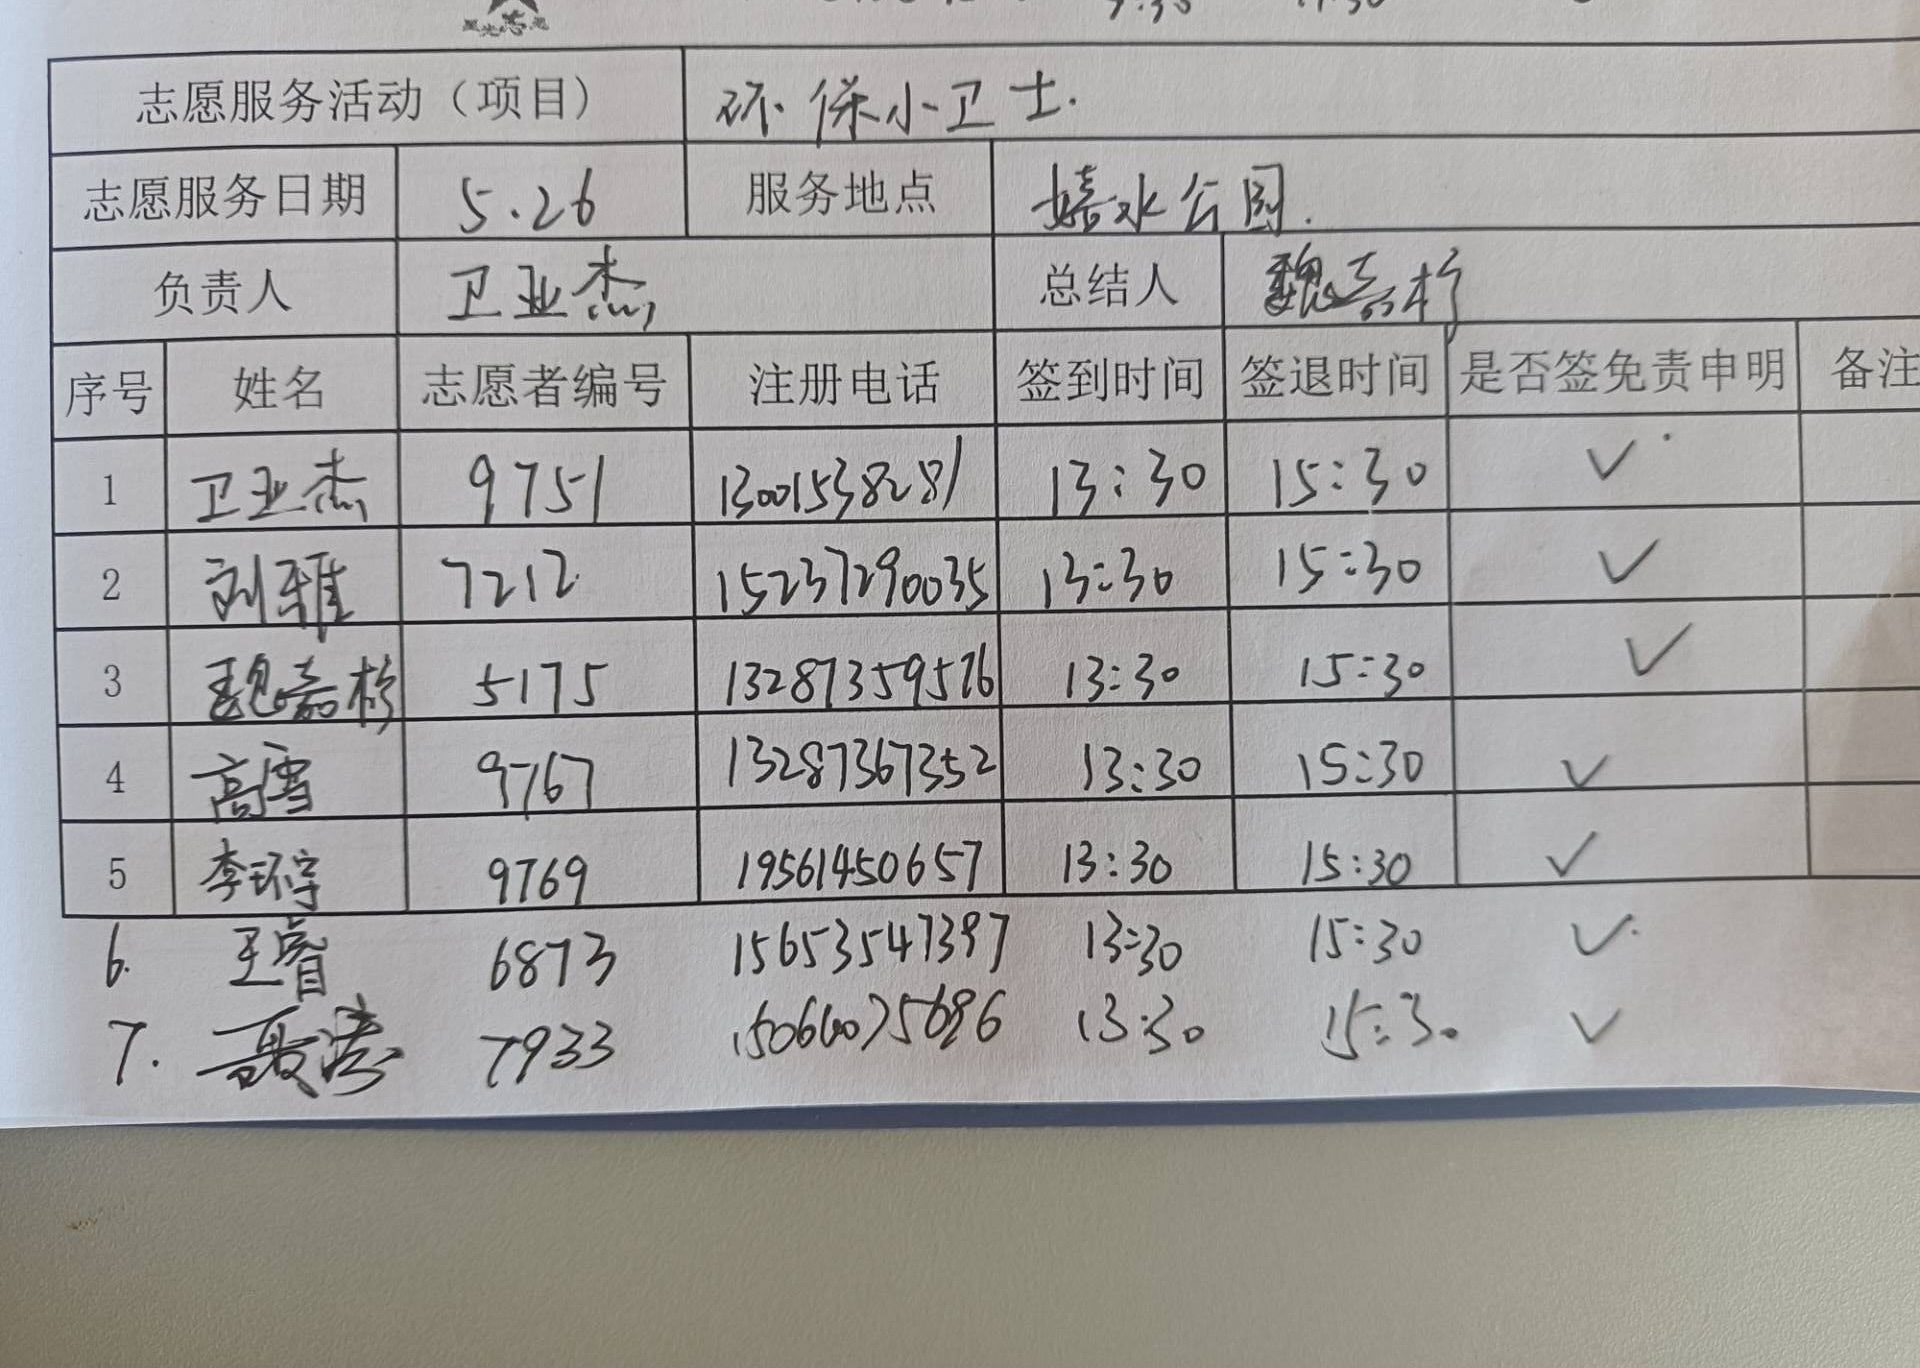 星光志愿
志愿服务活动（项目） 环保小卫士.
志愿服务日期 5.26 服务地点 嬉水公园.
负责人 卫亚杰 总结人 魏嘉杉
序号 姓名 志愿者编号 注册电话 签到时间 签退时间 是否签免责申明 备注
1 卫亚杰 9751 13001538281 13:30 15:30 ✓
2 刘雅 7212 15237290035 13:30 15:30 ✓
3 魏嘉杉 5175 13287359576 13:30 15:30 ✓
4 高雪 9767 13287367352 13:30 15:30 ✓
5 李环宇 9769 19561450657 13:30 15:30 ✓
6. 王睿 6873 15653547397 13:30 15:30 ✓
7. 7933 13:30 15:30 ✓